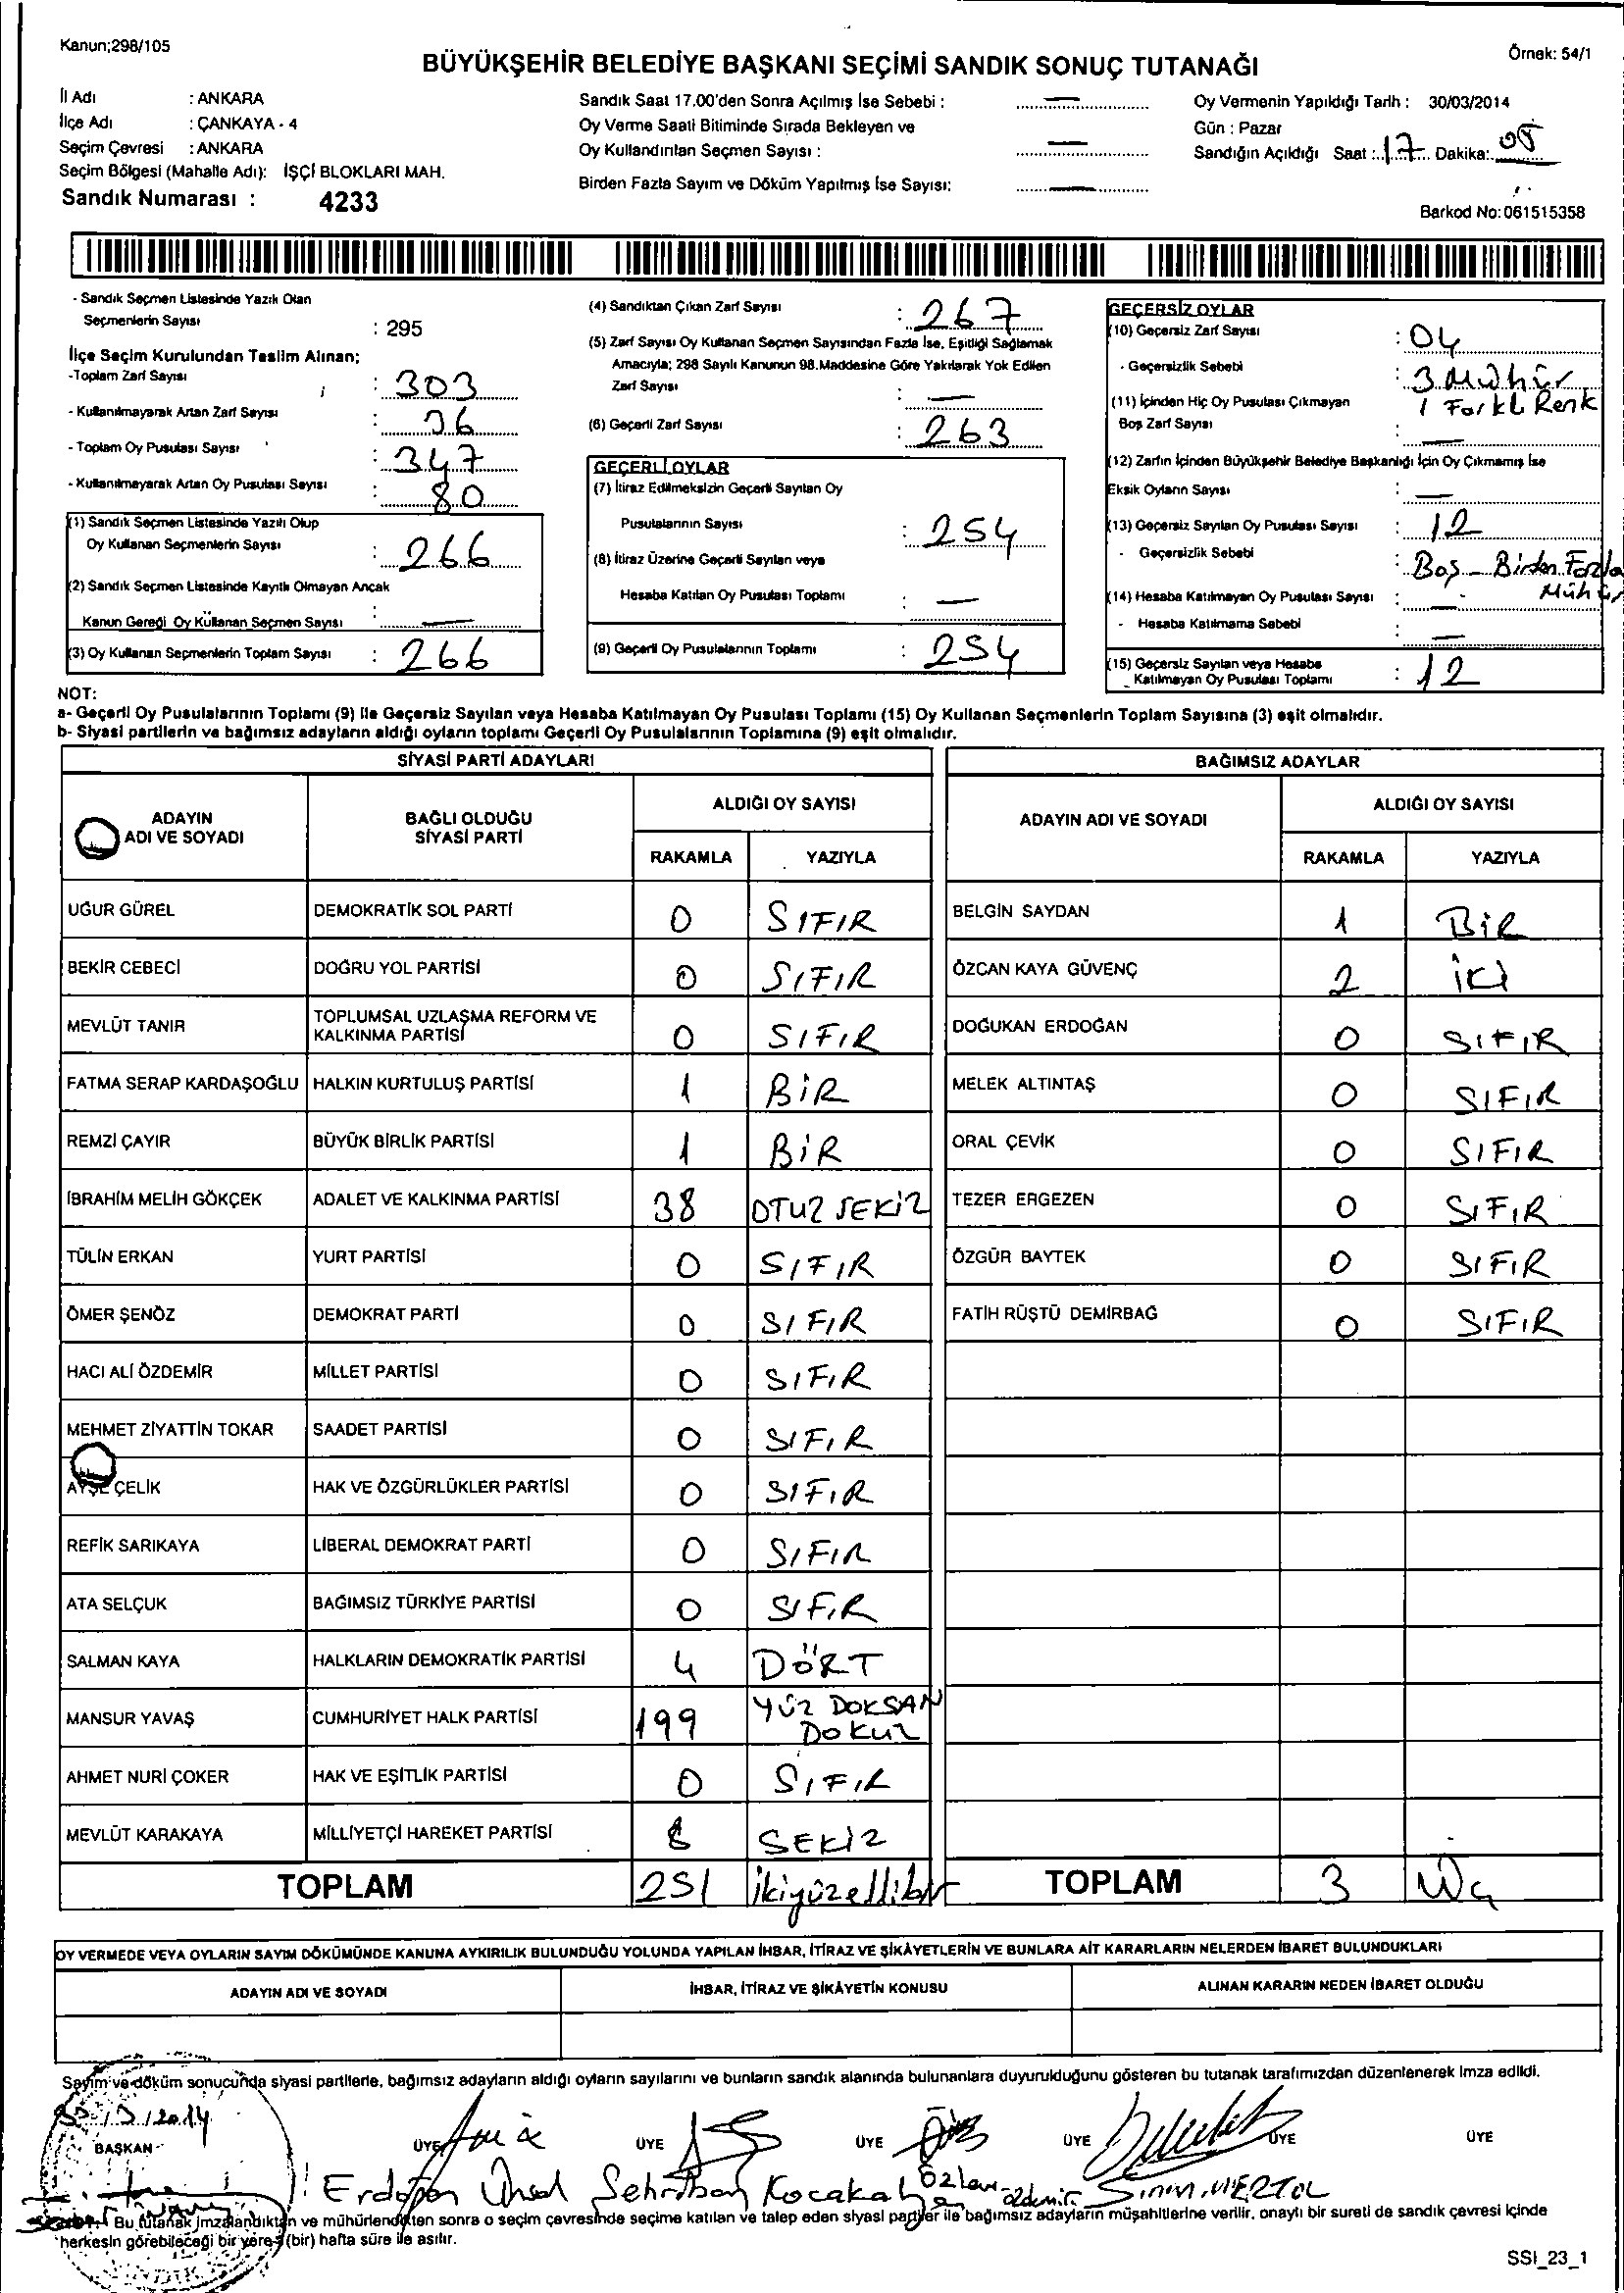 Kanun;298/105
Örnek: 54/1
BÜYÜKŞEHİR BELEDİYE BAŞKANI SEÇİMİ SANDIK SONUÇ TUTANAĞI
İl Adı : ANKARA
İlçe Adı : ÇANKAYA - 4
Seçim Çevresi : ANKARA
Seçim Bölgesi (Mahalle Adı): İŞÇİ BLOKLARI MAH.
Sandık Numarası : 4233
Sandık Saat 17.00'den Sonra Açılmış İse Sebebi : —
Oy Verme Saati Bitiminde Sırada Bekleyen ve
Oy Kullandırılan Seçmen Sayısı : —
Birden Fazla Sayım ve Döküm Yapılmış İse Sayısı: —
Oy Vermenin Yapıldığı Tarih : 30/03/2014
Gün : Pazar
Sandığın Açıldığı Saat : 17 Dakika: 05
Barkod No:061515358
- Sandık Seçmen Listesinde Yazılı Olan
Seçmenlerin Sayısı : 295
İlçe Seçim Kurulundan Teslim Alınan;
-Toplam Zarf Sayısı : 303
- Kullanılmayarak Artan Zarf Sayısı : 36
- Toplam Oy Pusulası Sayısı : 347
- Kullanılmayarak Artan Oy Pusulası Sayısı : 80
(1) Sandık Seçmen Listesinde Yazılı Olup
Oy Kullanan Seçmenlerin Sayısı : 266
(2) Sandık Seçmen Listesinde Kayıtlı Olmayan Ancak
Kanun Gereği Oy Kullanan Seçmen Sayısı : —
(3) Oy Kullanan Seçmenlerin Toplam Sayısı : 266
(4) Sandıktan Çıkan Zarf Sayısı : 267
(5) Zarf Sayısı Oy Kullanan Seçmen Sayısından Fazla İse, Eşitliği Sağlamak
Amacıyla; 298 Sayılı Kanunun 98.Maddesine Göre Yakılarak Yok Edilen
Zarf Sayısı : —
(6) Geçerli Zarf Sayısı : 263
GEÇERLİ OYLAR
(7) İtiraz Edilmeksizin Geçerli Sayılan Oy
Pusulalarının Sayısı : 254
(8) İtiraz Üzerine Geçerli Sayılan veya
Hesaba Katılan Oy Pusulası Toplamı : —
(9) Geçerli Oy Pusulalarının Toplamı : 254
GEÇERSİZ OYLAR
(10) Geçersiz Zarf Sayısı : 04
- Geçersizlik Sebebi : 3 Mühür
1 Farklı Renk
(11) İçinden Hiç Oy Pusulası Çıkmayan
Boş Zarf Sayısı : —
(12) Zarfın İçinden Büyükşehir Belediye Başkanlığı İçin Oy Çıkmamış İse
Eksik Oyların Sayısı : —
(13) Geçersiz Sayılan Oy Pusulası Sayısı : 12
- Geçersizlik Sebebi : Boş - Birden Fazla
Mühür
(14) Hesaba Katılmayan Oy Pusulası Sayısı : —
- Hesaba Katılmama Sebebi : —
(15) Geçersiz Sayılan veya Hesaba
Katılmayan Oy Pusulası Toplamı : 12
NOT:
a- Geçerli Oy Pusulalarının Toplamı (9) ile Geçersiz Sayılan veya Hesaba Katılmayan Oy Pusulası Toplamı (15) Oy Kullanan Seçmenlerin Toplam Sayısına (3) eşit olmalıdır.
b- Siyasi partilerin ve bağımsız adayların aldığı oyların toplamı Geçerli Oy Pusulalarının Toplamına (9) eşit olmalıdır.
SİYASİ PARTİ ADAYLARI
ADAYIN ADI VE SOYADI BAĞLI OLDUĞU SİYASİ PARTİ ALDIĞI OY SAYISI RAKAMLA YAZIYLA
UĞUR GÜREL DEMOKRATİK SOL PARTİ 0 SIFIR
BEKİR CEBECİ DOĞRU YOL PARTİSİ 0 SIFIR
MEVLÜT TANIR TOPLUMSAL UZLAŞMA REFORM VE KALKINMA PARTİSİ 0 SIFIR
FATMA SERAP KARDAŞOĞLU HALKIN KURTULUŞ PARTİSİ 1 BİR
REMZİ ÇAYIR BÜYÜK BİRLİK PARTİSİ 1 BİR
İBRAHİM MELİH GÖKÇEK ADALET VE KALKINMA PARTİSİ 38 OTUZ SEKİZ
TÜLİN ERKAN YURT PARTİSİ 0 SIFIR
ÖMER ŞENÖZ DEMOKRAT PARTİ 0 SIFIR
HACI ALİ ÖZDEMİR MİLLET PARTİSİ 0 SIFIR
MEHMET ZİYATTİN TOKAR SAADET PARTİSİ 0 SIFIR
AYŞE ÇELİK HAK VE ÖZGÜRLÜKLER PARTİSİ 0 SIFIR
REFİK SARIKAYA LİBERAL DEMOKRAT PARTİ 0 SIFIR
ATA SELÇUK BAĞIMSIZ TÜRKİYE PARTİSİ 0 SIFIR
SALMAN KAYA HALKLARIN DEMOKRATİK PARTİSİ 4 DÖRT
MANSUR YAVAŞ CUMHURİYET HALK PARTİSİ 199 YÜZ DOKSAN DOKUZ
AHMET NURİ ÇOKER HAK VE EŞİTLİK PARTİSİ 0 SIFIR
MEVLÜT KARAKAYA MİLLİYETÇİ HAREKET PARTİSİ 8 SEKİZ
TOPLAM 251 ikiyüzellibir
BAĞIMSIZ ADAYLAR
ADAYIN ADI VE SOYADI ALDIĞI OY SAYISI RAKAMLA YAZIYLA
BELGİN SAYDAN 1 BİR
ÖZCAN KAYA GÜVENÇ 2 İKİ
DOĞUKAN ERDOĞAN 0 SIFIR
MELEK ALTINTAŞ 0 SIFIR
ORAL ÇEVİK 0 SIFIR
TEZER ERGEZEN 0 SIFIR
ÖZGÜR BAYTEK 0 SIFIR
FATİH RÜŞTÜ DEMİRBAĞ 0 SIFIR
TOPLAM 3 Üç
OY VERMEDE VEYA OYLARIN SAYIM DÖKÜMÜNDE KANUNA AYKIRILIK BULUNDUĞU YOLUNDA YAPILAN İHBAR, İTİRAZ VE ŞİKÂYETLERİN VE BUNLARA AİT KARARLARIN NELERDEN İBARET BULUNDUKLARI
ADAYIN ADI VE SOYADI İHBAR, İTİRAZ VE ŞİKÂYETİN KONUSU ALINAN KARARIN NEDEN İBARET OLDUĞU
Sayım ve döküm sonucunda siyasi partilerle, bağımsız adayların aldığı oyların sayılarını ve bunların sandık alanında bulunanlara duyurulduğunu gösteren bu tutanak tarafımızdan düzenlenerek imza edildi.
BAŞKAN ÜYE ÜYE ÜYE ÜYE ÜYE ÜYE
Erdoğan Ünsal Şehriban Kocakalyan Özlem Özdemir Sinan MERTOL
Bu tutanak imzalandıktan ve mühürlendikten sonra o seçim çevresinde seçime katılan ve talep eden siyasi partiler ile bağımsız adayların müşahitlerine verilir, onaylı bir sureti de sandık çevresi içinde
herkesin görebileceği bir yere (bir) hafta süre ile asılır.
SSI_23_1